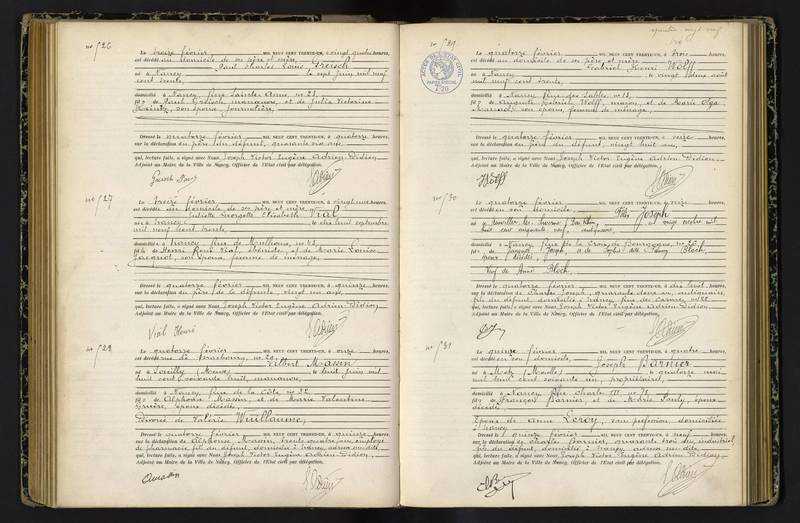 no 526
Le treize février MIL NEUF CENT TRENTE-UN, à vingt quatre heures,
est décédé au domicile de ses père et mère,
Paul Charles Louis Greisch
né à Nancy le sept juin mil neuf
cent trente,
domicilié à Nancy Rue Sainte-Anne, no 21,
fils de Paul Greisch, manœuvre, et de Julia Victorine
son épouse, journalière,
Dressé le quatorze février à quatorze heures,
sur la déclaration du père du défunt, quarante six ans,
qui, lecture faite, a signé avec Nous, Joseph Victor Eugène Adrien Didion,
Adjoint au Maire de la Ville de Nancy, Officier de l'Etat civil par délégation.
no 527
Le treize février MIL NEUF CENT TRENTE-UN, à vingt une heures,
est décédée au domicile de ses père et mère
Juliette Georgette Elisabeth Vial
née à Nancy le dix huit septembre
mil neuf cent trente,
domiciliée à Nancy Rue de Mulhouse, no 42,
fille de Henri René Vial, ébéniste, et de Marie Louise
Jacquot, son épouse, femme de ménage,
Dressé le quatorze février à quinze heures,
sur la déclaration du père de la défunte, vingt ans,
qui, lecture faite, a signé avec Nous, Joseph Victor Eugène Adrien Didion,
Adjoint au Maire de la Ville de Nancy, Officier de l'Etat civil par délégation.
Vial Henri
no 528
Le quatorze février MIL NEUF CENT TRENTE-UN, à onze heures,
est décédé rue de Strasbourg, no
Albert Massin
né à (Meuse) le huit juin mil
huit cent soixante huit, manœuvre,
domicilié à Nancy Rue de la Côte, no 22
fils de Alphonse Massin, et de Marie Valentine
époux décédés,
Divorcé de Valérie Wuillaume,
Dressé le quatorze février à quinze heures,
sur la déclaration de Alphonse Massin, trente quatre ans, employé
de pharmacie, fils du défunt, domicilié à Nancy,
qui, lecture faite, a signé avec Nous, Joseph Victor Eugène Adrien Didion,
Adjoint au Maire de la Ville de Nancy, Officier de l'Etat civil par délégation.
no 529
Le quatorze février MIL NEUF CENT TRENTE-UN, à trois heures,
est décédé au domicile de ses père et mère
Gabriel Henri Wolff
né à Nancy le vingt deux août
mil neuf cent trente,
domicilié à Nancy Rue des Sables, no 13,
fils de Auguste Gabriel Wolff, maçon, et de Marie Olga
son épouse, femme de ménage,
Dressé le quatorze février à seize heures,
sur la déclaration du père du défunt, vingt huit ans,
qui, lecture faite, a signé avec Nous, Joseph Victor Eugène Adrien Didion,
Adjoint au Maire de la Ville de Nancy, Officier de l'Etat civil par délégation.
Wolff
no 530
Le quatorze février MIL NEUF CENT TRENTE-UN, à seize heures,
est décédé en son domicile,
Félix Joseph
né à (Bas Rhin) le vingt octobre mil
huit cent cinquante neuf, antiquaire,
domicilié à Nancy Rue de la Croix de Bourgogne, no 26
fils de Jacques Joseph, et de Sophie dite Fanny Bloch,
époux décédés,
Veuf de Anna Bloch,
Dressé le quatorze février à dix huit heures,
sur la déclaration de Charles Joseph, quarante deux ans, antiquaire,
fils du défunt, domicilié à Nancy rue de Carnot, no 22
qui, lecture faite, a signé avec Nous, Joseph Victor Eugène Adrien Didion,
Adjoint au Maire de la Ville de Nancy, Officier de l'Etat civil par délégation.
no 531
Le quinze février MIL NEUF CENT TRENTE-UN, à quatre heures,
est décédé en son domicile,
Joseph Barnier
né à Metz (Moselle) le quatorze mai
mil huit cent soixante un, propriétaire,
domicilié à Nancy Rue Charles III, no 71,
fils de François Barnier, et de Marie Pauly, époux
décédés
Epoux de Anna Leroy, sans profession, domiciliée
à Nancy
Dressé le quinze février à neuf heures,
sur la déclaration de Charles Barnier, quarante trois ans, industriel,
fils du défunt, domicilié à Nancy
qui, lecture faite, a signé avec Nous, Joseph Victor Eugène Adrien Didion,
Adjoint au Maire de la Ville de Nancy, Officier de l'Etat civil par délégation.